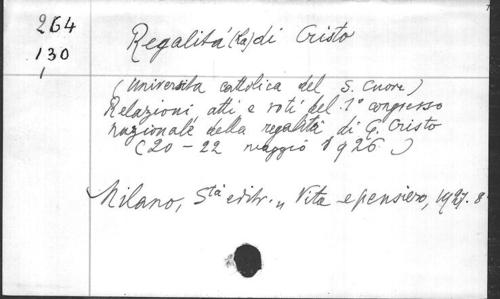 264
130
1
Regalità (La) di Cristo
(Università cattolica del S. Cuore)
Relazioni atti e voti del 1° congresso
nazionale della regalità di G. Cristo
(20-22 maggio 1926)
Milano, Stà editr. „ Vita e pensiero, 1927. 8